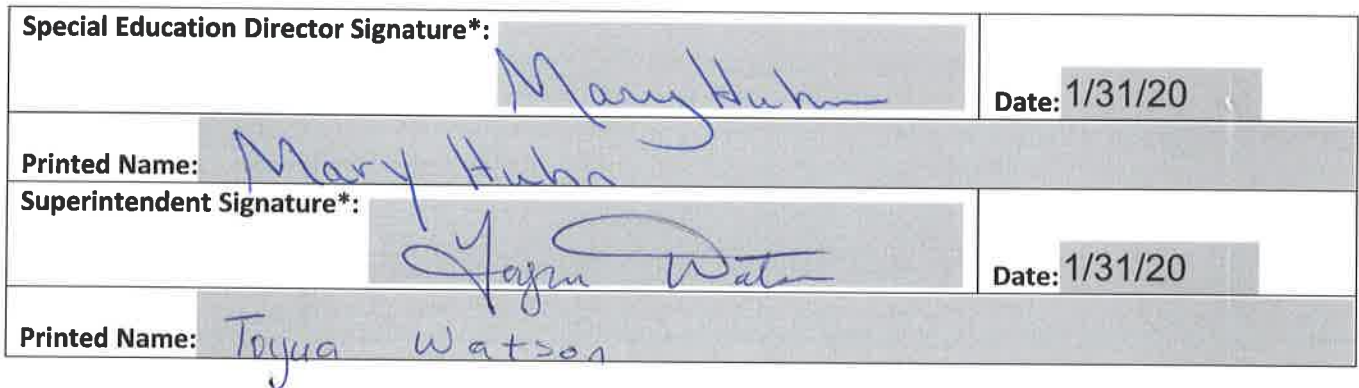 Special Education Director Signature*: Mary Huhn
Date: 1/31/20
Printed Name: Mary Huhn
Superintendent Signature*: Watson
Date: 1/31/20
Printed Name: Toyua Watson